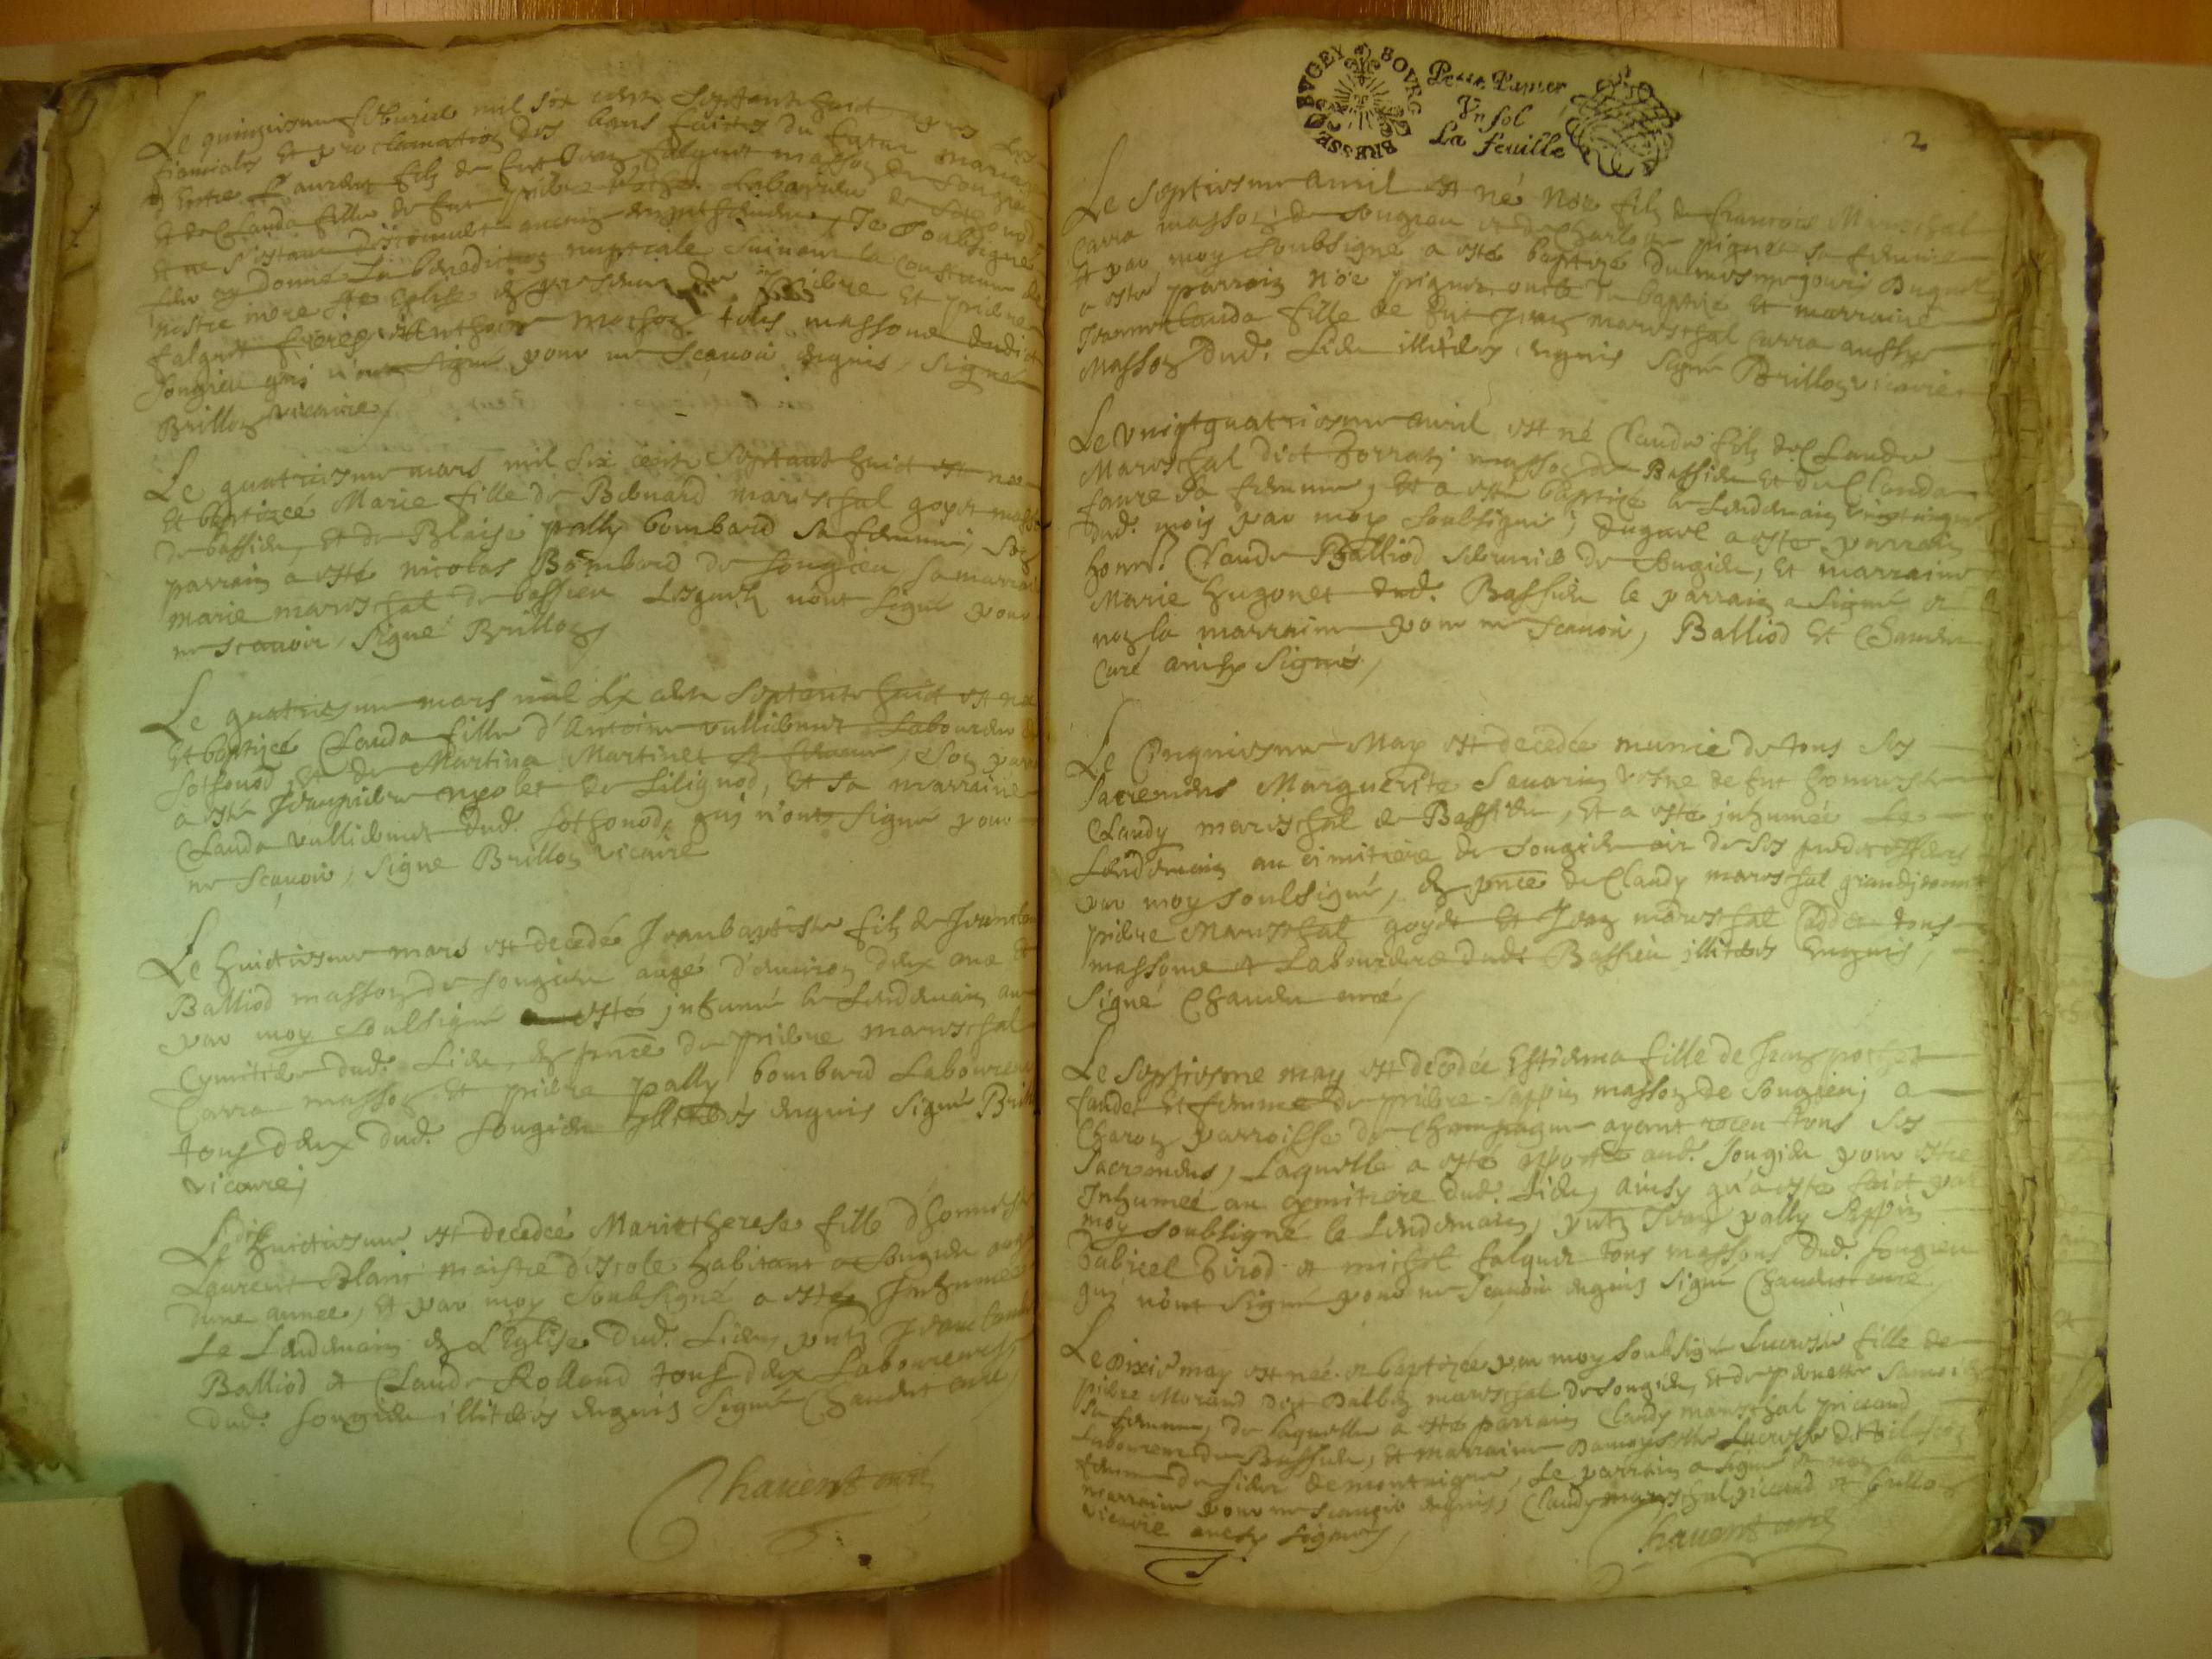 Le quinziesme feburier mil six cents septante huict apres les
fiancialles et proclamation des bans faictes du futur mariage
d'entre Laurent filz de feu Jean falquet masson de Songieu
et de Clauda fille de feu pierre
et ne s'estant descouuert aucung empeschement, Je soubsigné
leur ay donné la benediction nuptiale suiuant la coustume de
nostre mere ste Eglise en presence de pierre et pierre
falquet freres Anthoine mochon tous massons dudict
Songieu qui n'ont signé pour ne scauoir enquis, signé
Brillon vicaire
Le quatriesme mars mil six cents septante huict est née
et baptizeé Marie fille de Bernard mareschal goyet masson
de bassieu, et de Blaise pally bombard sa femme, son
parrain a esté nicolas Bombard de Songieu, sa marraine
marie mareschal de bassieu lesquels n'ont signé pour
ne scauoir, signé Brillon
Le quatriesme mars mil six cents septante huict est née
et baptizeé Clauda fille d'Antoine vulliemet Laboureur de
Sothonod, et de Martina Martinet sa femme, son parrain
a esté Jean pierre nycolet de Lilignod, et sa marraine
Clauda vulliemet dud. Sothonod, qui n'ont signé pour
ne scauoir, signé Brillon vicaire
Le huictiesme mars est decedé Jean baptiste filz de Jean claude
Balliod masson de songieu aagé d'enuiron deux ans et
par moy soubsigné a esté inhumé le lendemain au
Cymitiere dud. Lieu, en pnce de pierre mareschal
Carra masson et pierre pally bombard Laboureur
tous deux dud. songieu illiterés enquis signé Brillon
vicaire,
Le dit huictiesme est decedeé Marie therese fille d'honneste
Laurent Blanc maistre d'escole habitant a Songieu aagée
dune annee, et par moy soubsigné a esté Inhumeé
Le lendemain en L'Eglise dud. Lieu, pnts Jean claude
Balliod et Claude Rolland tous deux Laboureurs
dud. songieu illiterés enquis signé Chauent curé,
Chauent curé
BRESSE BVGEY BOVRG
Petit Papier
Vn sol
La feuille
2
Le septiesme auril est né Noe filz de francois Mareschal
Carra masson de songieu et de Charlotte piquet sa femme
et par moy soubsigné a esté baptizé du mesme jour, Duquel
a esté parrain Noe piquet oncle du baptizé et marraine
Jeanne clauda fille de feu Jean mareschal carra aussy
masson dud. Lieu illiterés enquis signé Brillon vicaire.
Le vingtquatriesme auril est né Claude filz de Claude
Mareschal dict masson de Bassieu et de Clauda
faure sa femme, et a esté baptizé le lendemain vingtcinq
dud. mois par moy soubsigné, duquel a esté parrain
honn. Claude Balliod de songieu, et marraine
Marie hugonet dud. Bassieu le parrain a signé et
non la marraine pour ne scauoir, Balliod et Chauent
curé ainsy signés,
Le cinquiesme May est decedée munie de tous ses
sacremens Marguerite Sauarin vefue de feu honneste
Claudy mareschal de Bassieu, et a esté inhumeé le
lendemain au cimitiere de songieu
par moy soubsigné, en pnce de Claudy mareschal
pierre Mareschal goyet et Jean mareschal tous
massons et Laboureurs dudt Bassieu illiterés enquis,
signé Chauent curé,
Le septiesme may est decedée Estienna fille de Jean pochet
faudet et femme de pierre Seppin masson de Songieu, a
Charon parroisse de Champagne ayant receu tous ses
sacremens, Laquelle a esté aportée aud. songieu pour estre
Inhumeé au cymitiere dud. Lieu, ainsy qu'a esté faict par
moy soubsigné le lendemain, pnts Jean pally Seppin
Gabriel Girod et michel falquet tous massons dud. songieu
qui n'ont signé pour ne scauoir enquis signé Chauent curé,
Le dixie may est née et baptizée par moy soubsigné Lucresse fille de
pierre Morand dict mareschal de songieu, et de
sa femme, de laquelle a esté parrain Claudy mareschal piccard
Laboureur de Bassieu, et marraine Damoyselle Lucresse
femme de sieur de montaigne, le parrain a signé et non la
marraine pour ne scauoir enquis, Claudy mareschal piccard et Brillon
vicaire ainsy signés,
Chauent curé